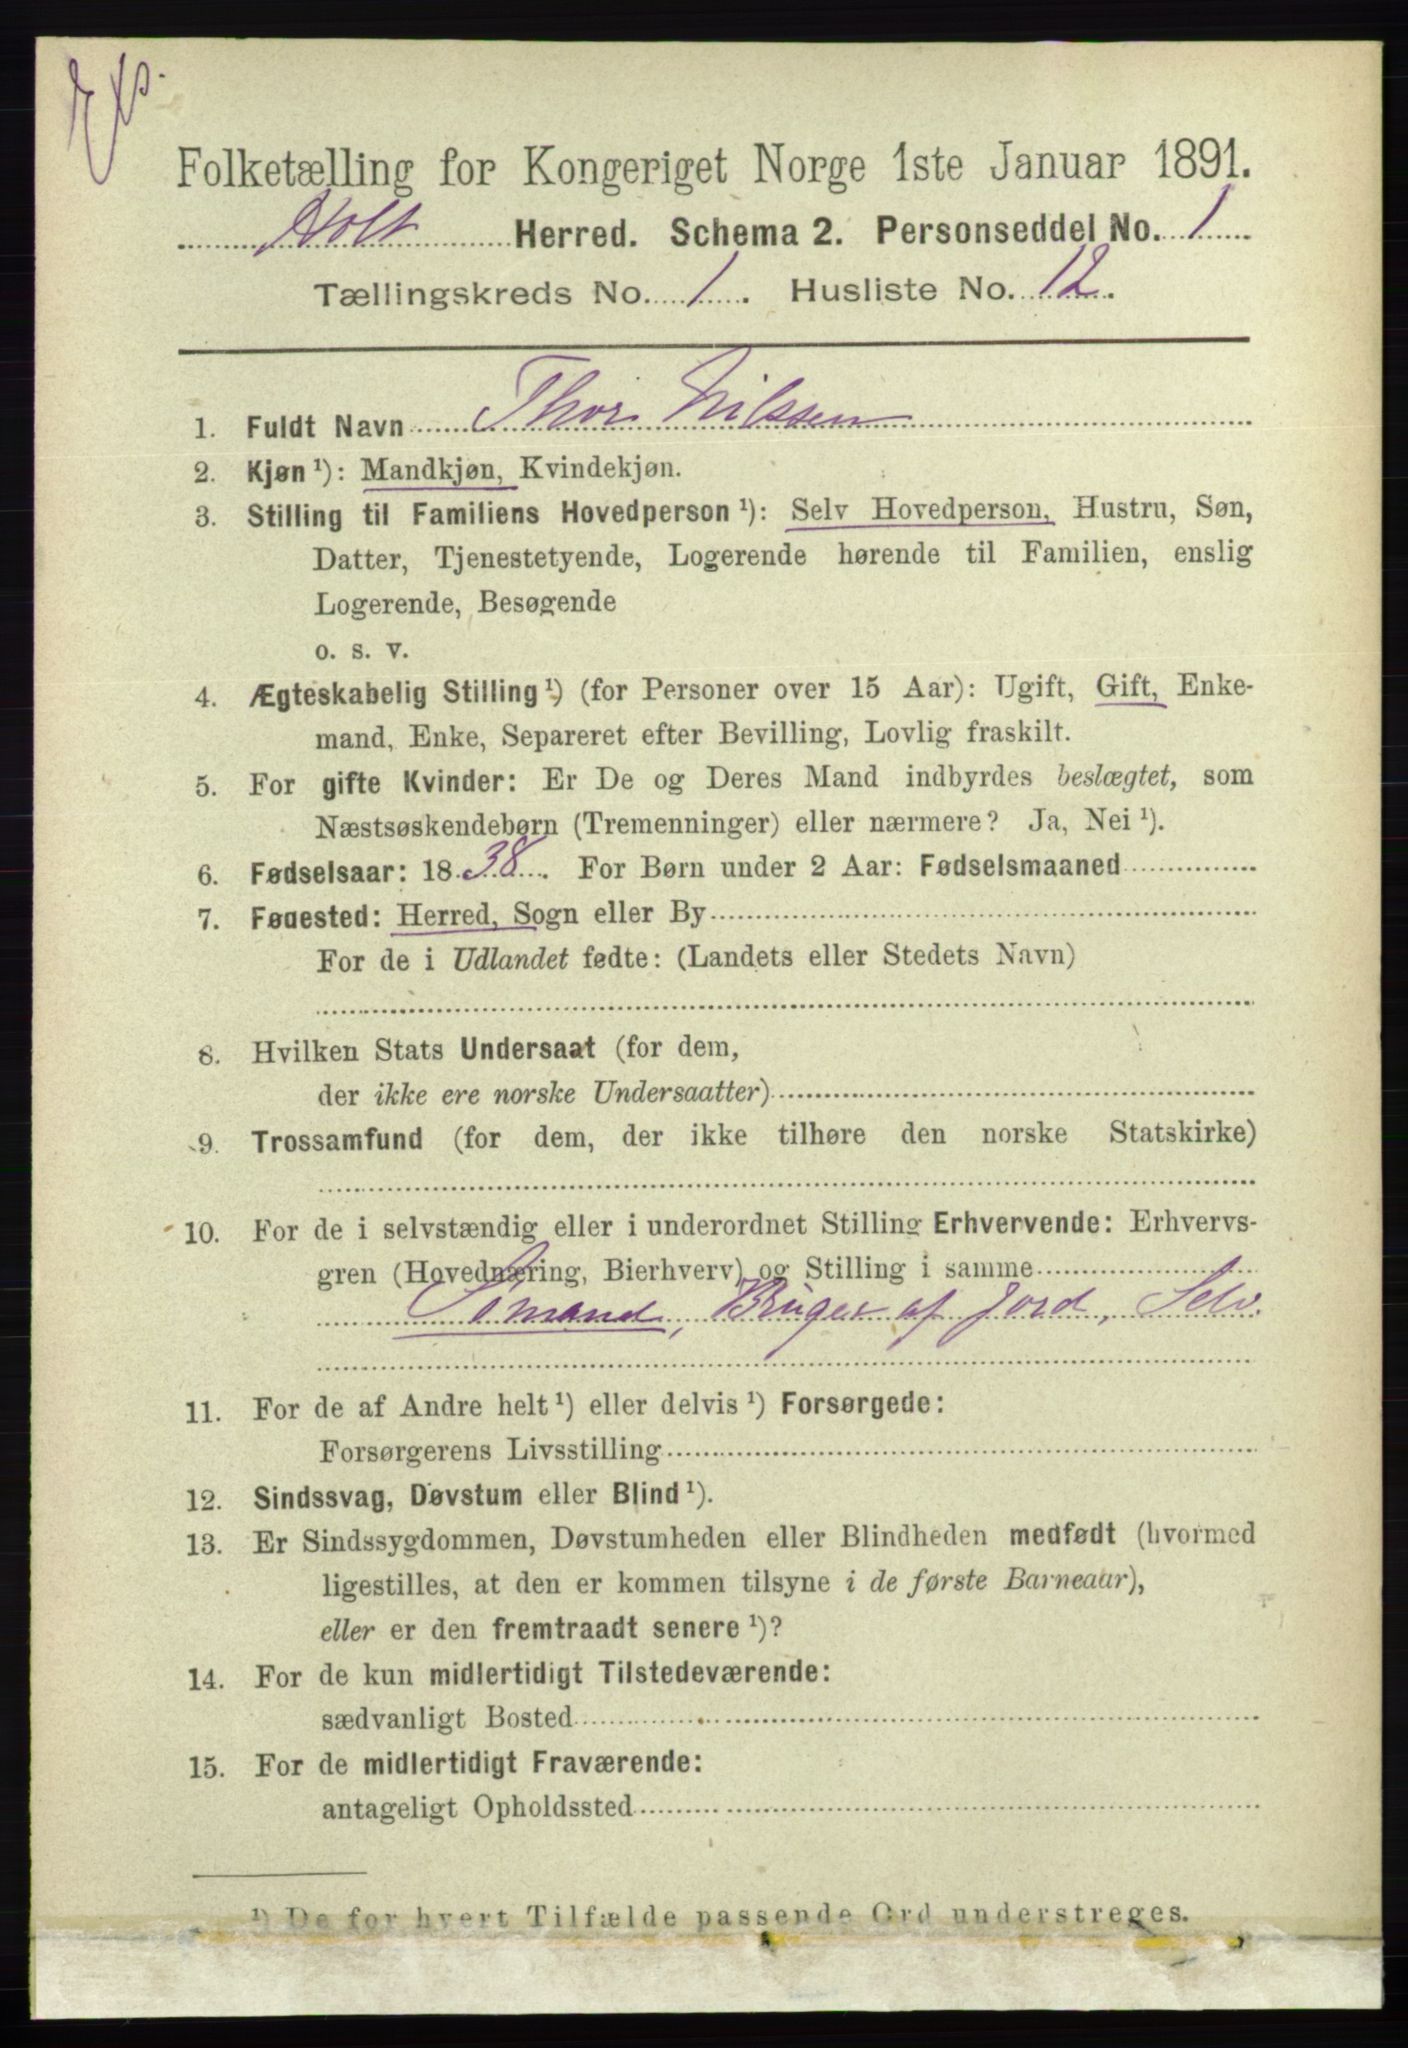 Folketælling for Kongeriget Norge 1ste Januar 1891.
Holt Herred. Schema 2. Personseddel No. 1
Tællingskreds No. 1. Husliste No. 12.
1. Fuldt Navn Thor Nilssen
2. Kjøn ¹): Mandkjøn, Kvindekjøn.
3. Stilling til Familiens Hovedperson ¹): Selv Hovedperson, Hustru, Søn,
Datter, Tjenestetyende, Logerende hørende til Familien, enslig
Logerende, Besøgende
o. s. v.
4. Ægteskabelig Stilling ¹) (for Personer over 15 Aar): Ugift, Gift, Enke-
mand, Enke, Separeret efter Bevilling, Lovlig fraskilt.
5. For gifte Kvinder: Er De og Deres Mand indbyrdes beslægtet, som
Næstsøskendebørn (Tremenninger) eller nærmere? Ja, Nei ¹).
6. Fødselsaar: 1838. For Børn under 2 Aar: Fødselsmaaned
7. Fødested: Herred, Sogn eller By
For de i Udlandet fødte: (Landets eller Stedets Navn)
8. Hvilken Stats Undersaat (for dem,
der ikke ere norske Undersaatter)
9. Trossamfund (for dem, der ikke tilhøre den norske Statskirke)
10. For de i selvstændig eller i underordnet Stilling Erhvervende: Erhvervs-
gren (Hovednæring, Bierhverv) og Stilling i samme
Sømand, Bruger af Jord, Selv.
11. For de af Andre helt ¹) eller delvis ¹) Forsørgede:
Forsørgerens Livsstilling
12. Sindssvag, Døvstum eller Blind ¹).
13. Er Sindssygdommen, Døvstumheden eller Blindheden medfødt (hvormed
ligestilles, at den er kommen tilsyne i de første Barneaar),
eller er den fremtraadt senere ¹)?
14. For de kun midlertidigt Tilstedeværende:
sædvanligt Bosted
15. For de midlertidigt Fraværende:
antageligt Opholdssted
¹) De for hvert Tilfælde passende Ord understreges.